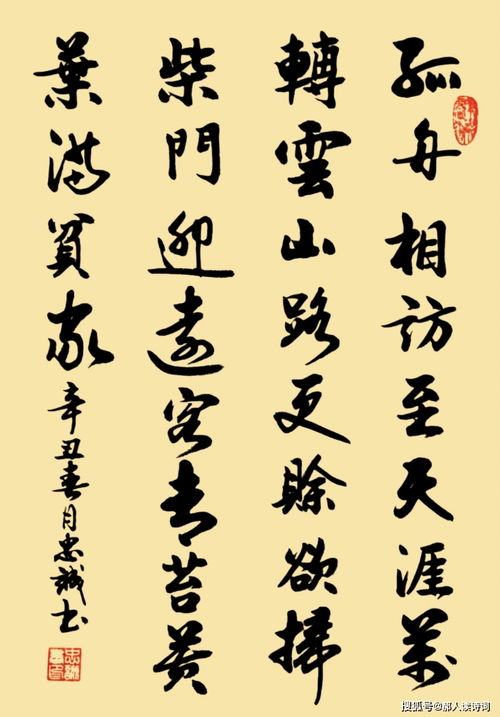 孤舟相訪至天涯萬
轉雲山路更賒欲掃
柴門迎遠客青苔黃
葉滿貧家
辛丑春月忠誠書
搜狐号@郝人读诗词